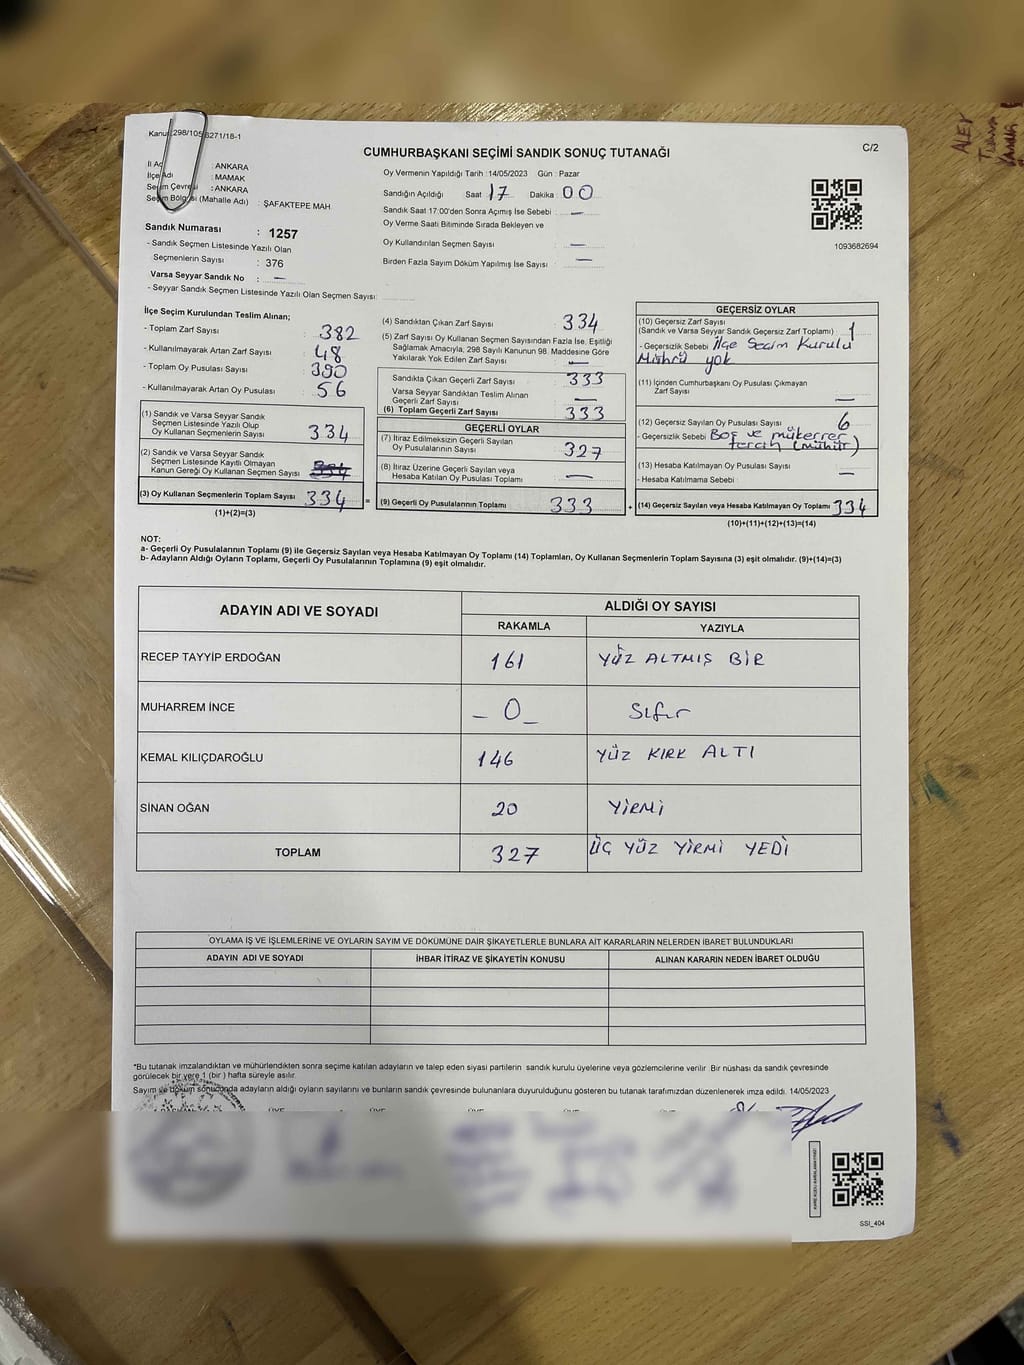 Kanun 298/105 6271/18-1
C/2
CUMHURBAŞKANI SEÇİMİ SANDIK SONUÇ TUTANAĞI
İl Adı : ANKARA
İlçe Adı : MAMAK
Seçim Çevresi : ANKARA
Seçim Bölgesi (Mahalle Adı) : ŞAFAKTEPE MAH.
Sandık Numarası : 1257
- Sandık Seçmen Listesinde Yazılı Olan
Seçmenlerin Sayısı : 376
Varsa Seyyar Sandık No : —
- Seyyar Sandık Seçmen Listesinde Yazılı Olan Seçmen Sayısı:
Oy Vermenin Yapıldığı Tarih : 14/05/2023 Gün : Pazar
Sandığın Açıldığı Saat 17 Dakika : 00
Sandık Saat 17:00'den Sonra Açılmış İse Sebebi : —
Oy Verme Saati Bitiminde Sırada Bekleyen ve
Oy Kullandırılan Seçmen Sayısı —
Birden Fazla Sayım Döküm Yapılmış İse Sayısı : —
1093682694
İlçe Seçim Kurulundan Teslim Alınan;
- Toplam Zarf Sayısı : 382
- Kullanılmayarak Artan Zarf Sayısı : 48
- Toplam Oy Pusulası Sayısı : 390
- Kullanılmayarak Artan Oy Pusulası : 56
(1) Sandık ve Varsa Seyyar Sandık
Seçmen Listesinde Yazılı Olup
Oy Kullanan Seçmenlerin Sayısı 334
(2) Sandık ve Varsa Seyyar Sandık
Seçmen Listesinde Kayıtlı Olmayan
Kanun Gereği Oy Kullanan Seçmen Sayısı 334
(3) Oy Kullanan Seçmenlerin Toplam Sayısı 334 =
(1)+(2)=(3)
(4) Sandıktan Çıkan Zarf Sayısı 334
(5) Zarf Sayısı Oy Kullanan Seçmen Sayısından Fazla İse, Eşitliği
Sağlamak Amacıyla, 298 Sayılı Kanunun 98. Maddesine Göre
Yakılarak Yok Edilen Zarf Sayısı : —
Sandıkta Çıkan Geçerli Zarf Sayısı : 333
Varsa Seyyar Sandıktan Teslim Alınan
Geçerli Zarf Sayısı : —
(6) Toplam Geçerli Zarf Sayısı : 333
GEÇERLİ OYLAR
(7) İtiraz Edilmeksizin Geçerli Sayılan
Oy Pusulasının Toplamı : 327
(8) İtiraz Üzerine Geçerli Sayılan veya
Hesaba Katılan Oy Pusulası Toplamı : —
(9) Geçerli Oy Pusulalarının Toplamı 333 +
GEÇERSİZ OYLAR
(10) Geçersiz Zarf Sayısı
(Sandık ve Varsa Seyyar Sandık Geçersiz Zarf Toplamı) : 1
- Geçersizlik Sebebi : İlçe Secim Kurulu
Mührü yok
(11) İçinden Cumhurbaşkanı Oy Pusulası Çıkmayan
Zarf Sayısı —
(12) Geçersiz Sayılan Oy Pusulası Sayısı : 6
- Geçersizlik Sebebi : Boş ve mükerrer
tercih (mühür)
(13) Hesaba Katılmayan Oy Pusulası Sayısı —
- Hesaba Katılmama Sebebi :
(14) Geçersiz Sayılan veya Hesaba Katılmayan Oy Toplamı 334
(10)+(11)+(12)+(13)=(14)
NOT:
a- Geçerli Oy Pusulalarının Toplamı (9) ile Geçersiz Sayılan veya Hesaba Katılmayan Oy Toplamı (14) Toplamları, Oy Kullanan Seçmenlerin Toplam Sayısına (3) eşit olmalıdır. (9)+(14)=(3)
b- Adayların Aldığı Oyların Toplamı, Geçerli Oy Pusulalarının Toplamına (9) eşit olmalıdır.
ADAYIN ADI VE SOYADI ALDIĞI OY SAYISI
RAKAMLA YAZIYLA
RECEP TAYYİP ERDOĞAN 161 YÜZ ALTMIŞ BİR
MUHARREM İNCE – 0 – Sıfır
KEMAL KILIÇDAROĞLU 146 YÜZ KIRK ALTI
SİNAN OĞAN 20 YİRMİ
TOPLAM 327 ÜÇ YÜZ YİRMİ YEDİ
OYLAMA İŞ VE İŞLEMLERİNE VE OYLARIN SAYIM VE DÖKÜMÜNE DAİR ŞİKAYETLERLE BUNLARA AİT KARARLARIN NELERDEN İBARET BULUNDUKLARI
ADAYIN ADI VE SOYADI İHBAR İTİRAZ VE ŞİKAYETİN KONUSU ALINAN KARARIN NEDEN İBARET OLDUĞU
*Bu tutanak imzalandıktan ve mühürlendikten sonra seçime katılan adayların ve talep eden siyasi partilerin sandık kurulu üyelerine veya gözlemcilerine verilir. Bir nüshası da sandık çevresinde
görülecek bir yere 1 (bir) hafta süreyle asılır.
Sayım ve döküm sonucunda adayların aldığı oyların sayılarını ve bunların sandık çevresinde bulunanlara duyurulduğunu gösteren bu tutanak tarafımızdan düzenlenerek imza edildi. 14/05/2023
BAŞKAN ÜYE ÜYE ÜYE ÜYE ÜYE
SSI_404
ALEV